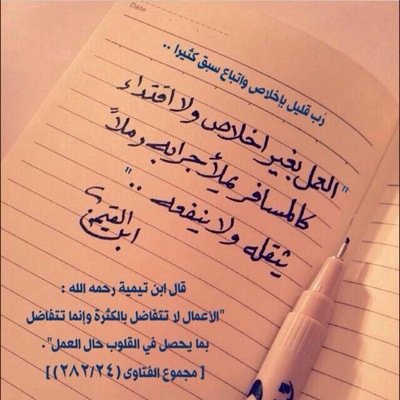 Date
رُب قليل بإخلاص واتباع سبق كثيرا ..
"العمل بغير اخلاص ولا اقتداء
كالمسافر يملأ جرابه رملاً
يثقله ولا ينفعه .."
ابن القيم
قال ابن تيمية رحمه الله :
"الأعمال لا تتفاضل بالكثرة وإنما تتفاضل
بما يحصل في القلوب حال العمل".
[ مجموع الفتاوى (٢٨٢/٢٤) ]